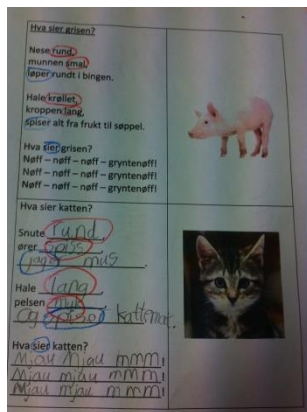 Hva sier grisen?
Nese rund,
munnen smal,
løper rundt i bingen.
Hale krøllet,
kroppen lang,
spiser alt fra frukt til søppel.
Hva sier grisen?
Nøff – nøff – nøff – gryntenøff!
Nøff – nøff – nøff – gryntenøff!
Nøff – nøff – nøff – gryntenøff!
Hva sier katten?
Snute rund,
ører spiss,
jager mus.
Hale lang
pelsen myk
og spiser kattemat.
Hva sier katten?
Mjau Mjau mmm!
Mjau mjau mmm!
Mjau mjau mmm!